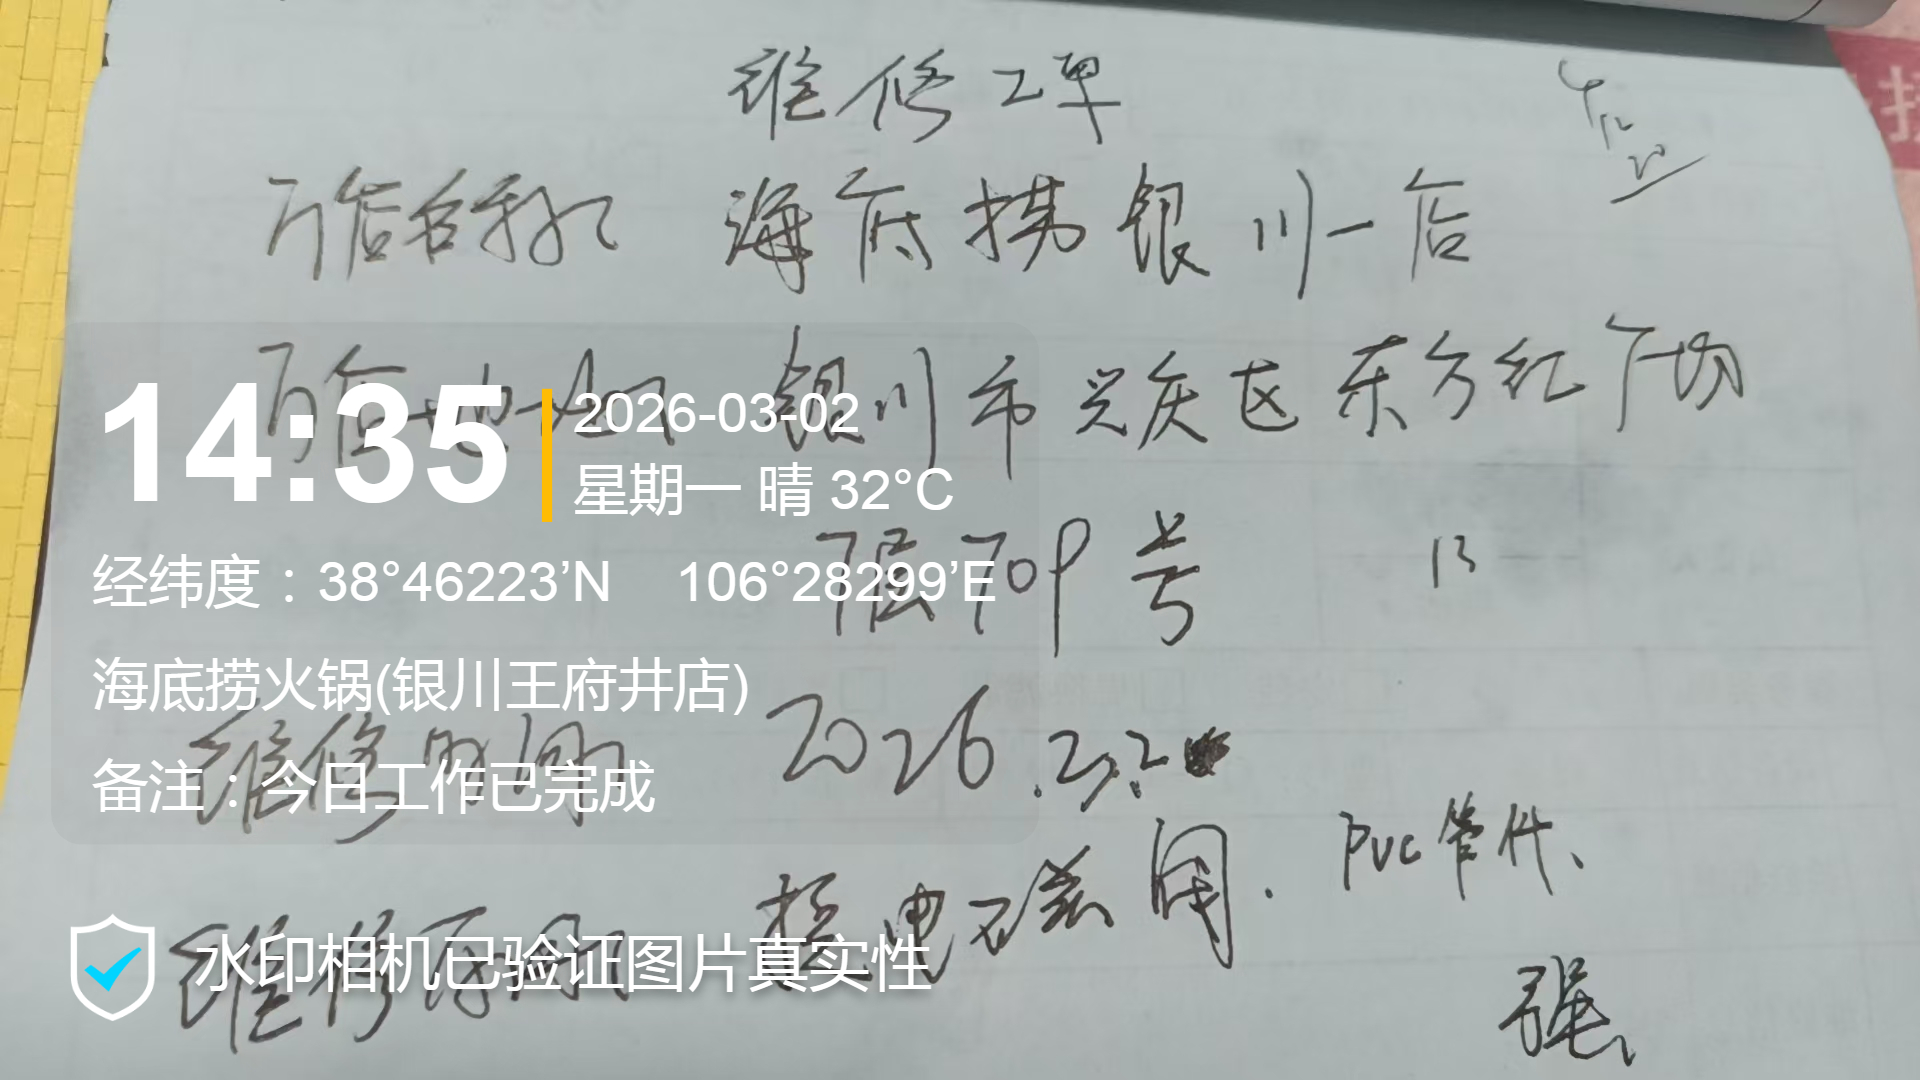 维修工单
门店名称 海底捞银川一店
门店地址 银川市兴庆区东方红广场
14:35
2026-03-02
星期一 晴 32°C
负一层 709号
13
经纬度：38°46223’N 106°28299’E
海底捞火锅(银川王府井店)
维修时间 2026.2.2
备注：今日工作已完成
换电磁阀. PVC管件、
水印相机已验证图片真实性
维修
强